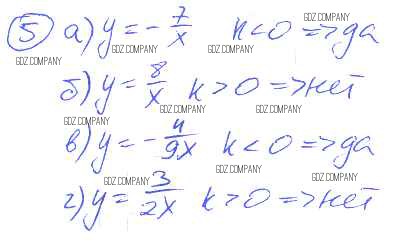 ⑤ а) y = - 7/x    k < 0 => да
б) y = 8/x    k > 0 => нет
в) y = - 4/9x    k < 0 => да
г) y = 3/2x    k > 0 => нет
GDZ.COMPANY
GDZ.COMPANY
GDZ.COMPANY
GDZ.COMPANY
GDZ.COMPANY
GDZ.COMPANY
GDZ.COMPANY
GDZ.COMPANY
GDZ.COMPANY
GDZ.COMPANY
GDZ.COMPANY
GDZ.COMPANY